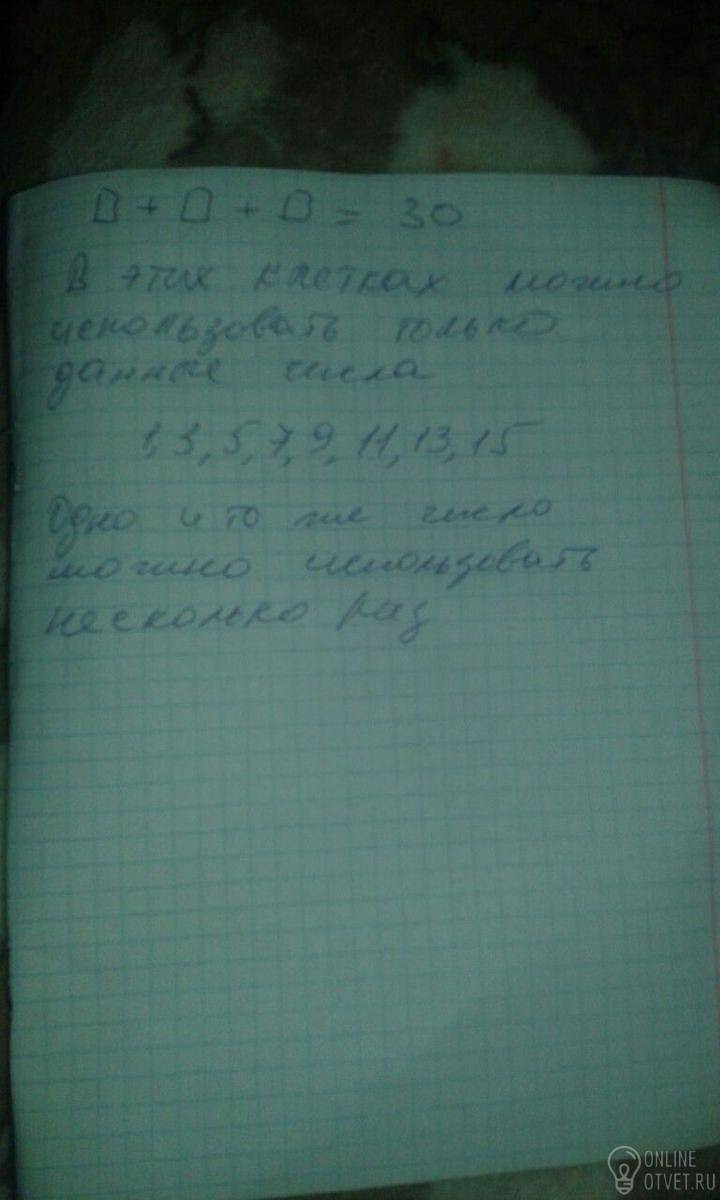 □ + □ + □ = 30
В этих клетках можно
использовать только
данные числа
1, 3, 5, 7, 9, 11, 13, 15
Одно и то же число
можно использовать
несколько раз
ONLINE
OTVET.RU